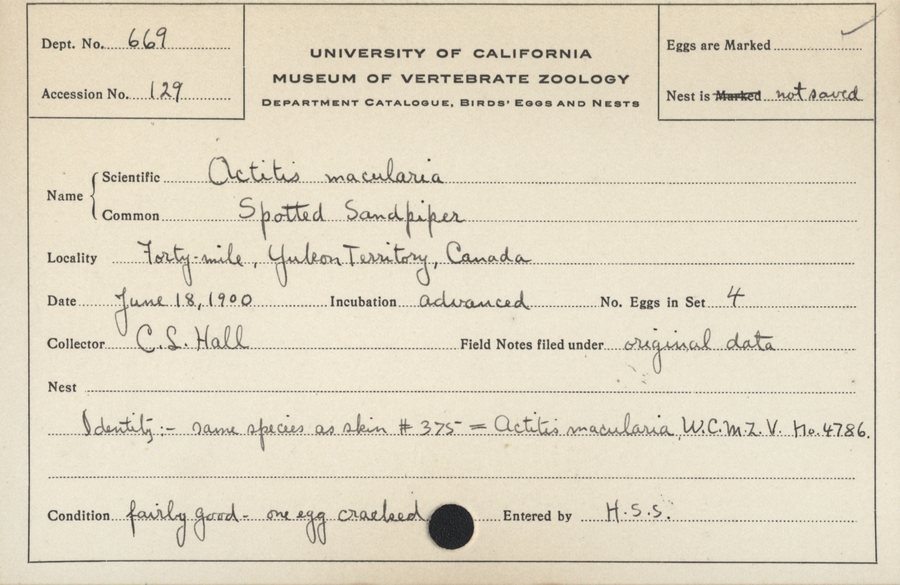 Dept. No. 669
Accession No. 129
UNIVERSITY OF CALIFORNIA
MUSEUM OF VERTEBRATE ZOOLOGY
DEPARTMENT CATALOGUE, BIRDS' EGGS AND NESTS
Eggs are Marked
Nest is Marked not saved
Name
Scientific Actitis macularia
Common Spotted Sandpiper
Locality Forty-mile, Yukon Territory, Canada
Date June 18, 1900 Incubation advanced No. Eggs in Set 4
Collector C.L. Hall Field Notes filed under original data
Nest
Identity:- same species as skin # 375 = Actitis macularia, U.C.M.Z.V. No. 4786.
Condition fairly good - one egg cracked Entered by H.S.S.